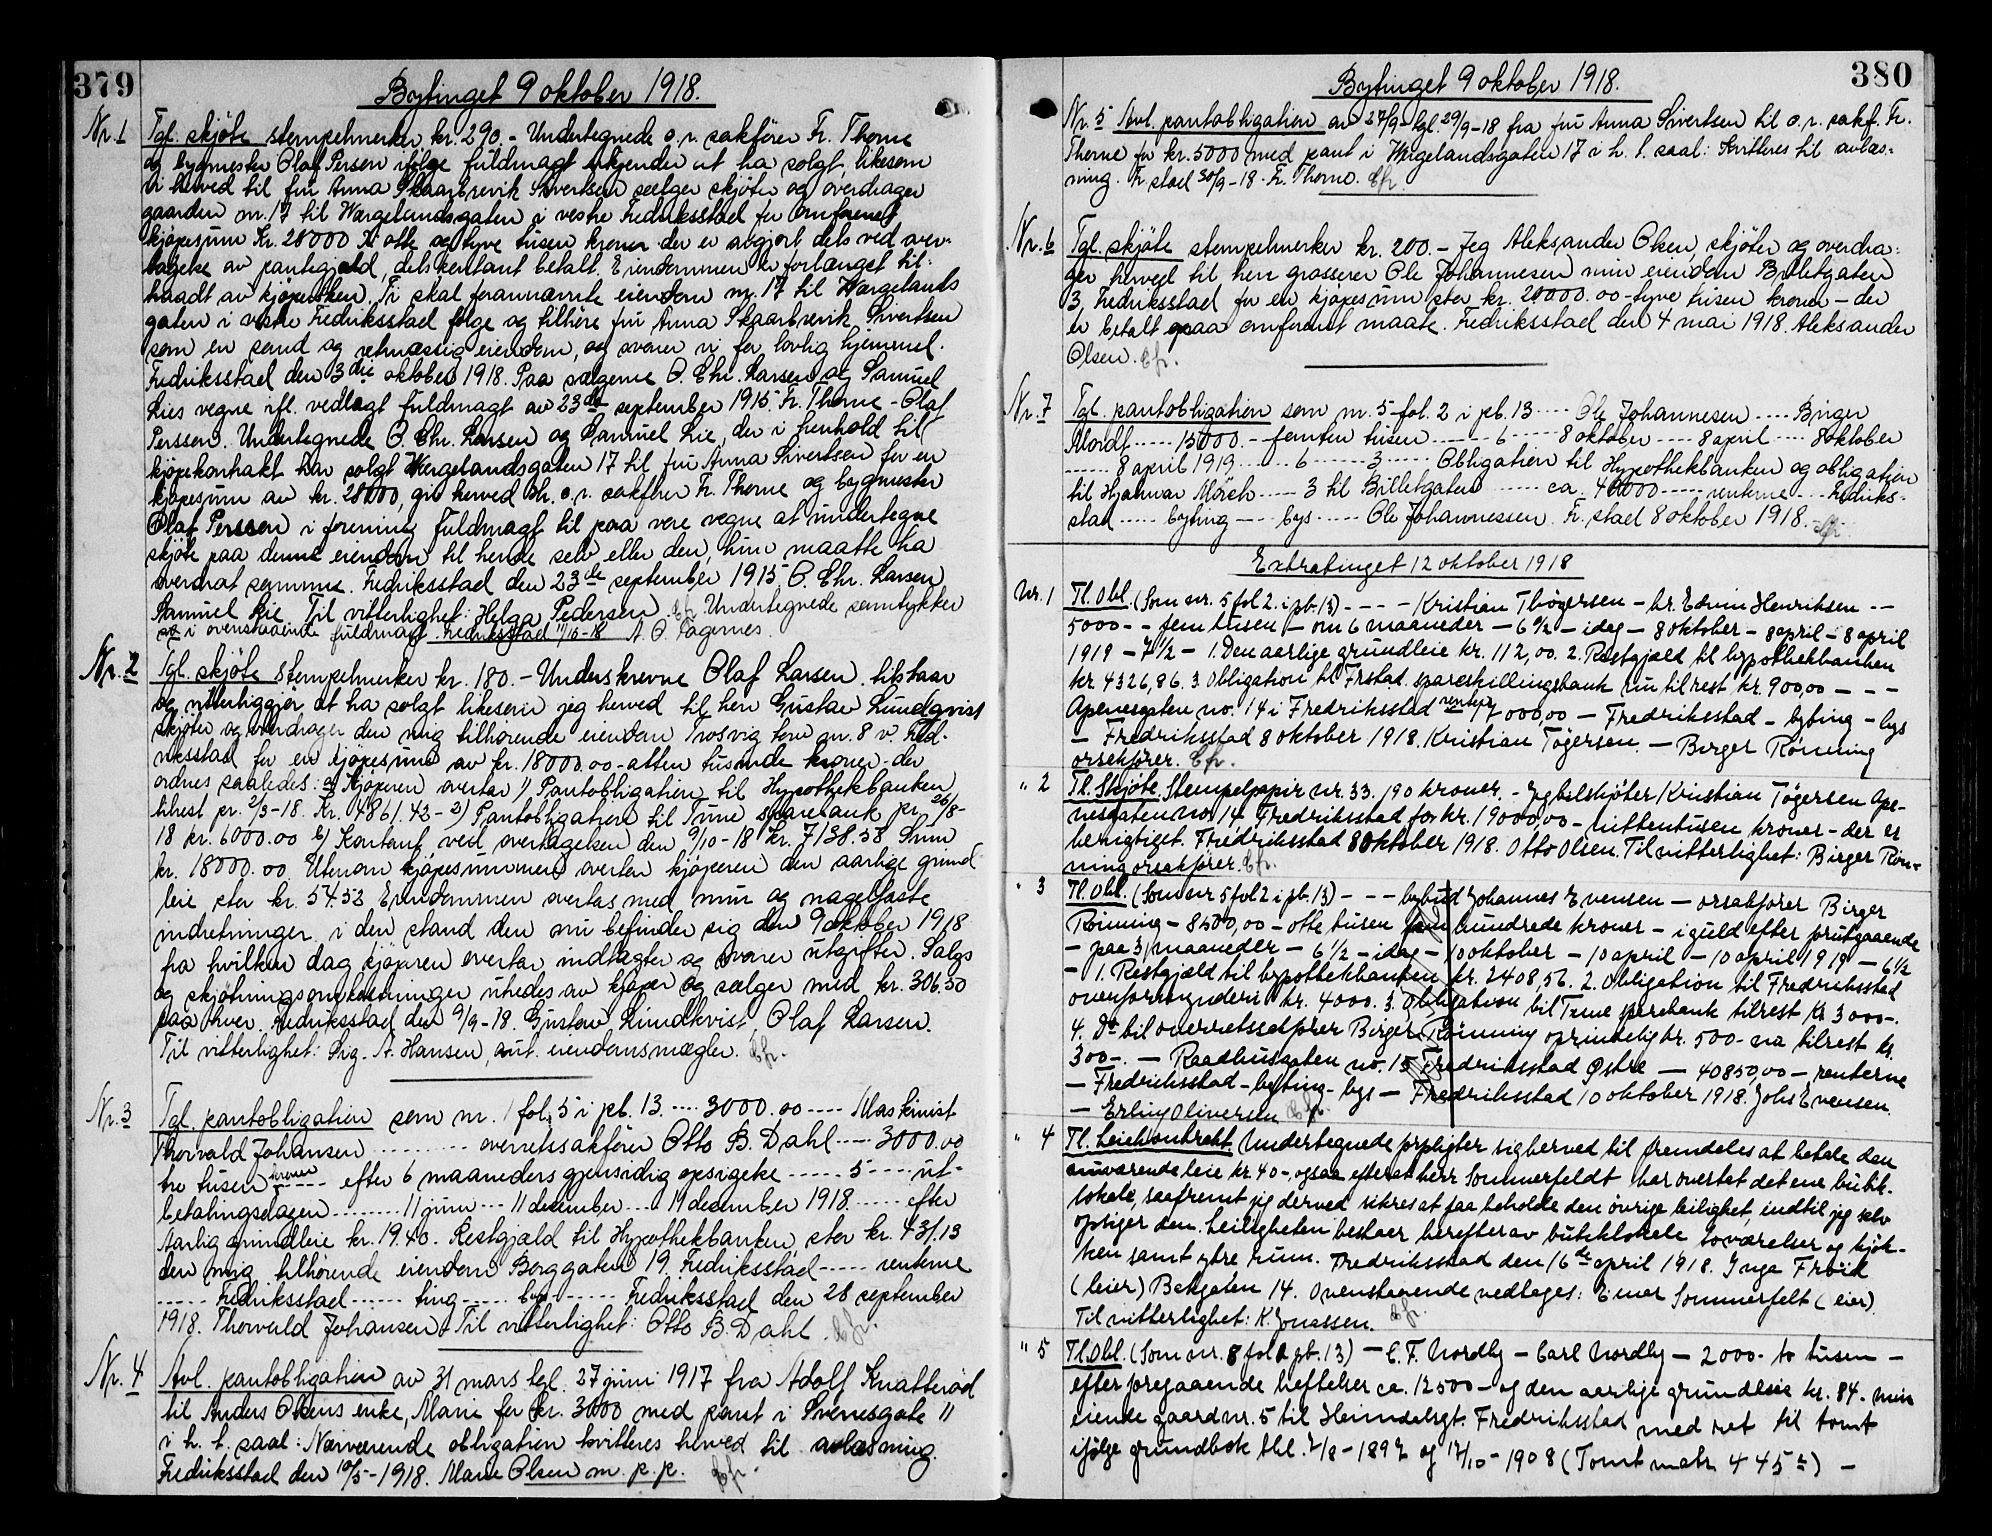 379
Bytinget 9 oktober 1918.
Nr. 1 Tgl. skjøte stempelmerker kr. 290.- Undertegnede o.r. sakfører Fr. Thorne
og bygmester Olaf Persen ifølge fuldmagt erkjender at ha solgt, likesom
vi herved til fru Anna Skaarbrevik Sivertsen sælger skjøter og overdrager
gaarden nr. 17 til Wergelandsgaten i vestre Fredriksstad for omforenet
kjøpesum Kr. 28000 Kr otte og tyve tusen kroner der er avgjort dels ved over-
tagelse av pantegjæld, dels kontant betalt. Eiendommen er forlænget til-
traadt av kjøpersken. Ti skal forannævnte eiendom nr. 17 til Wergelands
gaten i vestre Fredriksstad følge og tilhøre fru Anna Skaarbrevik Sivertsen
som en sand og retmæssig eiendom, og svarer vi for lovlig hjemmel.
Fredriksstad den 3die oktober 1918. Paa sælgerne O. Chr. Larsen og Samuel
Lies vegne ifl. vedlagt fuldmagt av 23de september 1915 Fr. Thorne - Olaf
Perssen. Undertegnede O. Chr. Larsen og Samuel Lie, der i henhold til
kjøpekontrakt har solgt Wergelandsgaten 17 til fru Anna Sivertsen for en
kjøpesum av kr. 28000, gir herved hr. o.r. sakfører Fr. Thorne og bygmester
Olaf Perssen i forening fuldmagt til paa vore vegne at undertegne
skjøte paa denne eiendom til hende selv eller den, hun maatte ha
overdrat samme. Fredriksstad den 23de september 1915 O. Chr. Larsen
Samuel Lie Til vitterlighet: Helga Pedersen. Undertegnede samtykker
i ovenstaaende fuldmagt. Fredriksstad 11/10-18 A. O. Fagernes.
Nr. 2 Tgl. skjøte stempelmerker kr. 180.- Underskrevne Olaf Larsen tilstaar
og vitterliggjør at ha solgt likesom jeg herved til herr Gustav Lundqvist
skjøter og overdrager den mig tilhørende eiendom Trosvig tom nr. 8 v. Fred-
riksstad for en kjøpesum av kr. 18000.00 - atten tusinde kroner - der
ordnes saaledes: a) Kjøperen overtar 1) Pantobligation til Hypothekbanken
tilrest pr. 2/3-18. Kr. 4861.42 - 2) Pantobligation til Tune sparebank pr. 26/8-
18 kr. 6000.00 b) Kontant ved overtagelsen den 9/10-18 kr. 7138.58 Sum
kr. 18000.00. Utenom kjøpesummen overtar kjøperen den aarlige grund
leie stor kr. 54.53 Eiendommen overtas med mur og nagelfaste
indretninger i den stand den nu befinder sig den 9 oktober 1918
fra hvilken dag kjøperen overtar indtægter og svarer utgifter. Salgs
og skjøtningsomkostninger utredes av kjøper og sælger med kr. 306.50
paa hver. Fredriksstad den 9/9-18. Gustav Lundkvist, Olaf Larsen.
Til vitterlighet: Sig. A. Hansen, aut. eiendomsmægler.
Nr. 3 Tgl. pantobligation som nr. 1 fol. 5 i pb. 13. .... 3000.00 .... Maskinist
Thorvald Johansen ........ overretssakfører Otto B. Dahl .... 3000.00
tre tusen kroner .... efter 6 maaneders gjensidig opsigelse ..... 5 .... ut-
betalingsdagen ....... 11 juni ... 11 december .... 11 december 1918 ..... efter
Aarlig grundleie kr. 19.40. Restgjæld til Hypothekbanken, stor kr. 431.13
den mig tilhørende eiendom Borggaten 19. Fredriksstad ..... renterne
..... Fredriksstad ..... ting ..... bys ...... Fredriksstad den 28 september
1918. Thorvald Johansen Til vitterlighet: Otto B. Dahl
Nr. 4 Avl. pantobligation av 31 mars tgl. 27 juni 1917 fra Adolf Knatterød
til Anders Olsens enke, Marie for kr. 3000 med pant i Svenesgate 11
i h. t. saal: Nærværende obligation kvitteres herved til avlæsning.
Fredriksstad den 10/5-1918. Marie Olsen m. p. p.
380
Bytinget 9 oktober 1918.
Nr. 5 Avl. pantobligation av 27/9 tgl. 29/9-18 fra fru Anna Sivertsen til o.r. sakf. Fr.
Thorne for kr. 5000 med pant i Wergelandsgaten 17 i h. t. saal: Kvitteres til avlæs-
ning. Fr.stad 30/9-18. Fr. Thorne.
Nr. 6 Tgl. skjøte stempelmerker kr. 200.- Jeg Aleksander Olsen, skjøter og overdra-
ger herved til herr grosserer Ole Johannesen min eiendom Billetgaten
3, Fredriksstad for en kjøpesum stor kr. 20000.00 - tyve tusen kroner - der
er betalt paa omforent maate. Fredriksstad den 4 mai 1918. Aleksander
Olsen.
Nr. 7 Tgl. pantobligation som nr. 5 fol. 2 i pb. 13 .... Ole Johannesen .... Birger
Mordt ..... 15000.- femten tusen ..... 6 .... 8 oktober .... 8 april .... 8 oktober
..... 8 april 1919 ..... 6 ..... 3 ..... Obligation til Hypothekbanken og obligation
til Hjalmar Mørch ..... 3 til Billetgaten ...... ca. 40000 ..... renterne ... Fredriks-
stad ..... byting ... bys ..... Ole Johannessen. Fr.stad 8 oktober 1918.
Extratinget 12 oktober 1918
Nr. 1 Tl. Obl. (Som nr. 5 fol 2. i pb. 13) - - - - Kristian Thøgersen - hr. Edvin Henriksen - -
5000 - - fem tusen - om 6 maaneder - 6% - idag - 8 oktober - 8 april - 8 april
1919 - 7½ - 1. Den aarlige grundleie kr. 112,00. 2. Restgjæld til hypothekbanken
kr. 4326,86. 3. Obligation til Frstad spareskillingsbank nu tilrest kr. 900,00 - - -
Apenesgaten no. 14 i Fredriksstad renterne 17000,00 - Fredriksstad - byting - bys
- Fredriksstad 8 oktober 1918. Kristian Tøgersen. - Birger Rönning
orsakfører.
" 2 Tl. Skjøte. Stempelpapir nr. 33. 190 kroner. - Jeg tilskjøter Kristian Tøgersen Ape-
nesgaten no. 14 Fredriksstad for kr. 19000,00 - nittentusen kroner - der er
berigtiget. Fredriksstad 8 oktober 1918. Otto Olsen. Til vitterlighet: Birger Rön-
ning orsakfører.
" 3 Tl. Obl. (Som nr 5 fol 2 i pb. 13) - - - bybud Johannes Evensen - orsakfører Birger
Rönning - 8500,00 - otte tusen fem hundrede kroner - i guld efter forutgaaende
- paa 3 maaneder - 6½ - idag - 10 oktober - 10 april - 10 april 1919 - 6½
- 1. Restgjæld til hypothekbanken kr. 2408,56. 2. Obligation til Fredriksstad
overformynderi kr. 4000. 3. Obligation til Tune sparebank tilrest kr 3000-.
4. Do til overretssakfører Birger Rönning oprindelig kr. 500- na tilrest kr.
300-. - Raadhusgaten no. 15 Fredriksstad Østre - 40850,00 - renterne
- Fredriksstad - byting - bys - Fredriksstad 10 oktober 1918. Johs Evensen.
- Erling Oliversen
" 4 Tl. Leiekontrakt. Undertegnede forpligter sig herved til fremdeles at betale den
nuværende leie kr. 40-, ogsaa efter at herr Sommerfeldt har overtat det ene butik-
lokale, saafremt jeg derved sikres at faa beholde den øvrige leilighet, indtil jeg selv
opsiger den. Leiligheten bestaar herefter av butiklokale to værelser og kjøk-
ken samt ytre rum. Fredriksstad den 16de april 1918. Inga Frøid
(leier) Bakgaten 14. Ovenstaaende vedtages: Einar Sommerfelt (eier).
Til vitterlighet: K. Jonassen.
" 5 Tl. Obl. (Som nr. 8 fol 2 pb. 13) - C. F. Nordby - Carl Nordby - 2000- to tusen -
efter foregaaende heftelser ca. 12500 - og den aarlige grundleie kr. 84.- min
eiende gaard nr. 5 til Heimdalsgt. Fredriksstad med ret til tomt
ifølge grundbok tbl. 7/8-1897 og 12/10-1908 (Tomt matr 445a) -